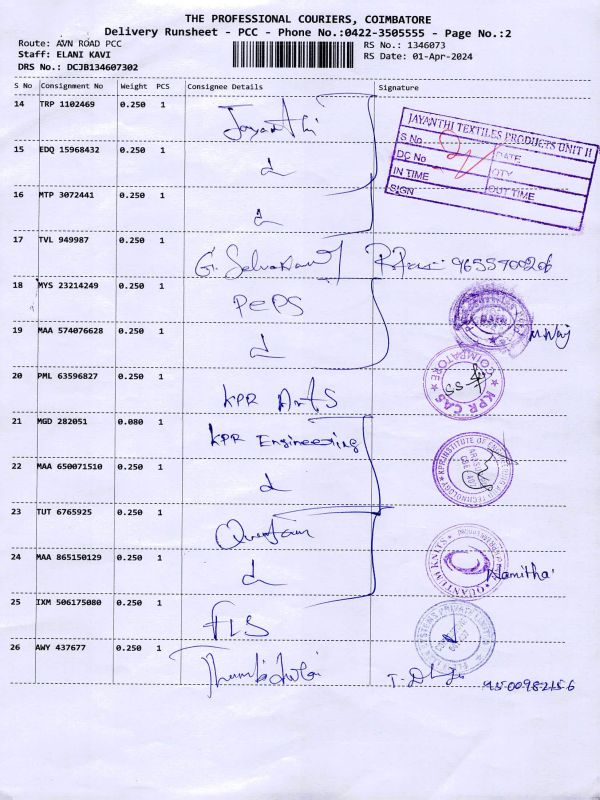 THE PROFESSIONAL COURIERS, COIMBATORE
Delivery Runsheet - PCC - Phone No.:0422-3505555 - Page No.:2
Route: AVN ROAD PCC
RS No.: 1346073
Staff: ELANI KAVI
RS Date: 01-Apr-2024
DRS No.: DCJB134607302
S No Consignment No Weight PCS Consignee Details Signature
14 TRP 1102469 0.250 1 Jayanthi
JAYANTHI TEXTILES PRODUCTS UNIT II
S No DATE
DC No QTY
IN TIME OUT TIME
SIGN
15 EDQ 15968432 0.250 1 d
16 MTP 3072441 0.250 1 d
17 TVL 949987 0.250 1 G. Selvakumar
18 MYS 23214249 0.250 1 PEPS
19 MAA 574076628 0.250 1 d
20 PML 63596827 0.250 1 KPR Arts
COIMBATORE
KPR CAS
21 MGD 282051 0.080 1 KPR Engineering
22 MAA 650071510 0.250 1 d
23 TUT 6765925 0.250 1 Quantum
24 MAA 865150129 0.250 1 d
QUANTUM KNITS
Namitha
25 IXM 506175080 0.250 1 FLS
26 AWY 437677 0.250 1
9500982156